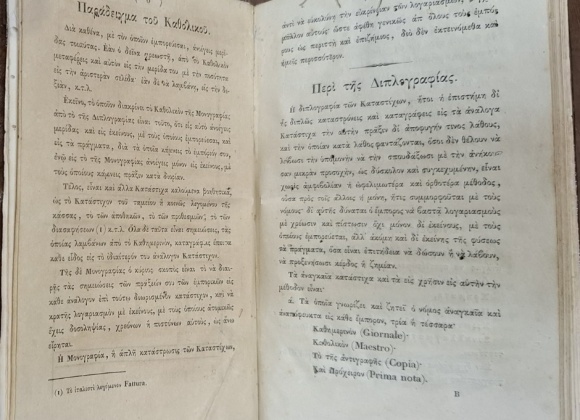 Παράδειγμα τοῦ Καθολικοῦ.
Διὰ καθένα, μὲ τὸν ὁποῖον ἐμπορεύεται, ἀνοίγεις μερί-
δας τοιαύτας. Ἐὰν ὁ δεῖνα χρεωστῇ, ἀπὸ τὸ Καθολικὸν
μεταφέρεις καὶ αὐτὸν εἰς τὴν μερίδα του μὲ τὴν ποσότητα
εἰς τὴν ἀριστερὰν σελίδα· ἐὰν δὲ νὰ λαμβάνῃ, εἰς τὴν δε-
ξιὰν, κ.τ.λ.
Ἐκεῖνο, τὸ ὁποῖον διακρίνει τὸ Καθολικὸν τῆς Μονογραφίας
ἀπὸ τὸ τῆς Διπλογραφίας εἶναι τοῦτο, ὅτι εἰς αὐτὸ ἀνοίγεις
μερίδας καὶ εἰς ἐκείνους, μὲ τοὺς ὁποίους ἐμπορεύεσαι, καὶ
εἰς τὰ πράγματα, διὰ τὰ ὁποῖα κάμνεις τὸ ἐμπόριόν σου,
ἐνῷ εἰς τὸ τῆς Μονογραφίας ἀνοίγεις μόνον εἰς ἐκείνους, μὲ
τοὺς ὁποίους κάμνεις πράξεις κατὰ δυρίαν.
Τέλος, εἶναι καὶ ἄλλα Κατάστιχα καλούμενα βοηθητικὰ,
ὡς τὸ Κατάστιχον τοῦ ταμείου ἢ κοινῶς λεγομένου τῆς
κάσσας, τὸ τῶν ἀποθηκῶν, τὸ τῶν προθεσμιῶν, τὸ τῶν
διασαφήσεων (1) κ.τ.λ. Ὅλα δὲ ταῦτα εἶναι σημειώσεις, τὰς
ὁποίας λαμβάνων ἀπὸ τὸ Καθημερινὸν, καταγράφεις ἔπειτα
κάθε εἶδος εἰς τὸ ἰδιαίτερόν του ἀνάλογον Κατάστιχον.
Τῆς δὲ Μονογραφίας ὁ κύριος σκοπὸς εἶναι τὸ νὰ διαι-
ρῇς τὰς σημειώσεις τῶν πράξεών σου τῶν ἐμπορικῶν εἰς
κάθε ἀνάλογον ἐπὶ τούτῳ διωρισμένον κατάστιχον, καὶ νὰ
κρατῇς λογαριασμὸν μὲ ἐκείνους, μὲ τοὺς ὁποίους ἀτομικῶς
ἔχεις δοσοληψίας, χρεώνων ἢ πιστώνων αὐτοὺς, ὡς ἄνω
εἴρηται.
Ἡ Μονογραφία, ἢ ἁπλῆ κατάστρωσις τῶν Καταστίχων,
(1) Τὸ ἰταλιστὶ λεγόμενον Fattura.
ἀντὶ νὰ εὐκολύνῃ τὴν ἐξακρίβωσιν τῶν λογαριασμῶν,
μᾶλλον αὐτούς· ὥστε ἀφέθη γενικῶς ἀπ' ὅλους τοὺς ἐμπό-
ρους ὡς περιττὴ καὶ ἐπιζήμιος, διὸ δὲν ἐκτεινόμεθα καὶ
ἡμεῖς περισσότερον.
Περὶ τῆς Διπλογραφίας.
Ἡ διπλογραφία τῶν Καταστίχων, ἤτοι ἡ ἐπιστήμη δι'
ἧς διπλῶς καταστρώνεις καὶ καταγράφεις εἰς τὰ ἀνάλογα
Κατάστιχα τὴν αὐτὴν πρᾶξιν δι' ἀποφυγήν τινος λάθους,
καὶ τὴν ὁποίαν κατὰ λάθος φαντάζονται, ὅσοι δὲν θέλουν νὰ
λάβωσι τὴν ὑπομονὴν νὰ τὴν σπουδάξωσι μὲ τὴν ἀνήκου-
σαν μικρὰν προσοχὴν, ὡς δύσκολον καὶ συγκεχυμένην, εἶναι
χωρὶς ἀμφιβολίαν ἡ ὠφελιμωτέρα καὶ ὀρθοτέρα μέθοδος,
οὖσα πρὸς τοῖς ἄλλοις ἡ μόνη, ἥτις συμμορφοῦται μὲ τοὺς
νόμους· δι' αὐτῆς δύναται ὁ ἔμπορος νὰ βαστᾷ λογαριασμοὺς
μὲ χρέωσιν καὶ πίστωσιν ὄχι μόνον δι' ἐκείνους, μὲ τοὺς
ὁποίους ἐμπορεύεται, ἀλλ' ἀκόμη καὶ δι' ἐκείνα τῆς φύσεως
τὰ πράγματα, ὅσα εἶναι ἐπιτήδεια νὰ δώσουν ἢ νὰ λάβουν,
νὰ προξενήσωσι κέρδος ἢ ζημίαν.
Τὰ ἀναγκαῖα κατάστιχα καὶ τὰ εἰς χρῆσιν εἰς αὐτὴν τὴν
μέθοδον εἶναι·
α. Τὰ ὁποῖα γνωρίζει καὶ ζητεῖ ὁ νόμος ἀναγκαῖα καὶ
ἀναπόφευκτα εἰς κάθε ἔμπορον, τρία ἢ τέσσαρα·
Καθημερινὸν (Giornale)·
Καθολικὸν (Maestro)·
Τὸ τῆς ἀντιγραφῆς (Copia)·
Καὶ Πρόχειρον (Prima nota).
B